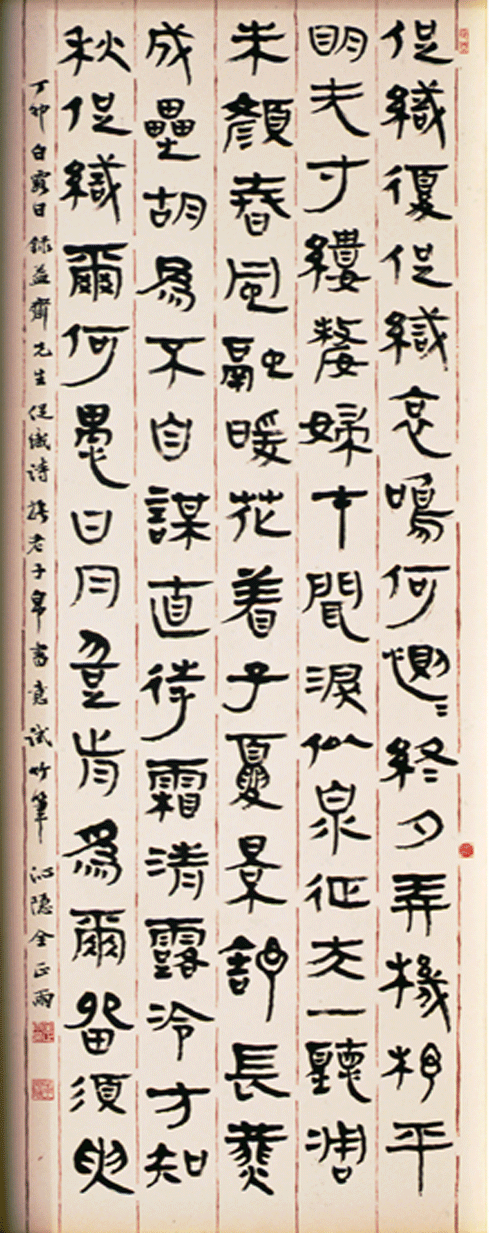 促織復促織哀鳴何惻〻終夕弄機杼平
明无寸縷嫠婦才聞淚似泉征夫一聽凋
朱顏春風融暖花着子夏景舒長燕
成壘胡為不自謀直待霜清露冷方知
秋促織爾何愚日月豈肯為爾留須臾
丁卯白露日錄益齋先生促織詩老子帛書意試竹筆 沁隱金正雨